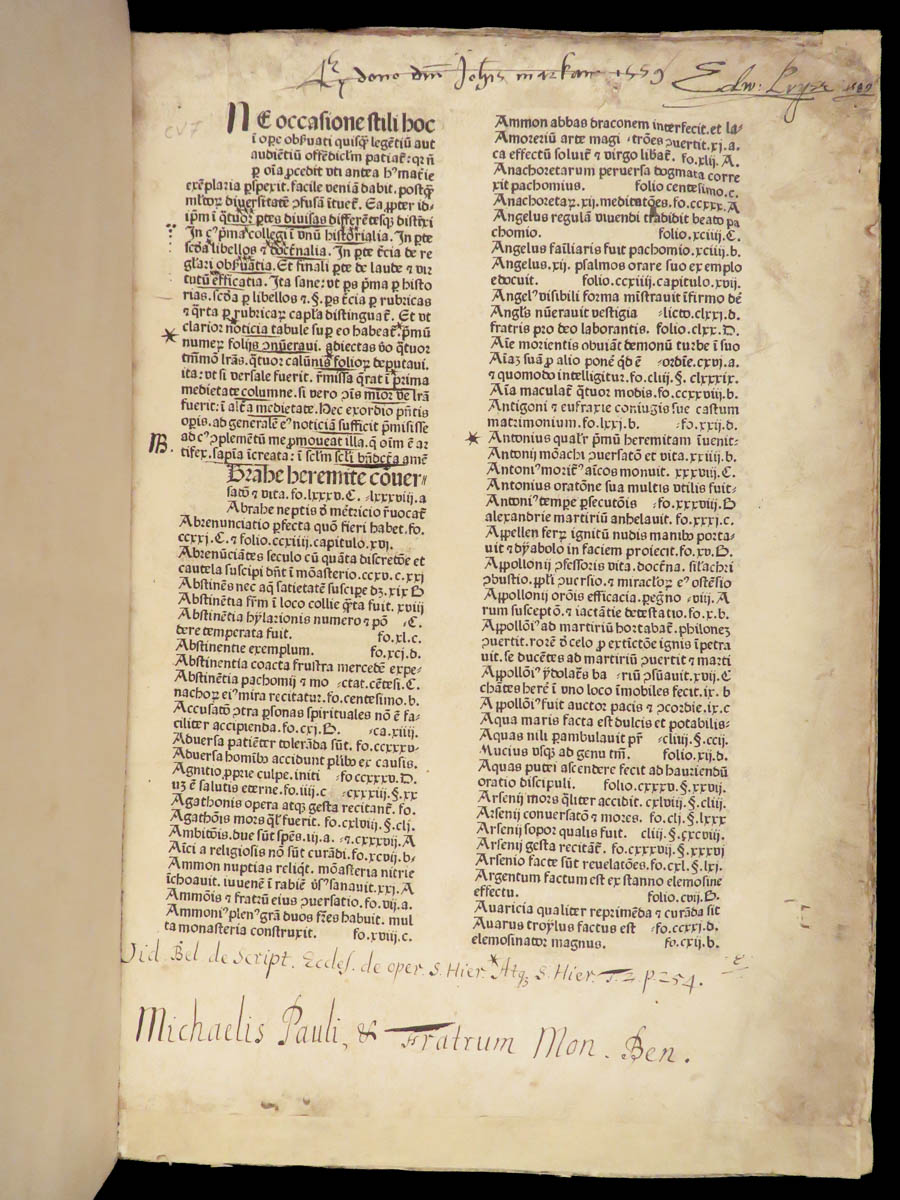 Ex dono dni Johis markam 1559
Edw: Pryse
CV7
NE occasione stili hoc
i ope obſuati quiſqȝ legẽtiũ aut
audiẽtiũ offẽdiclm patiat̃: qꝛ ñ
ꝑ oĩa ꝓcedit vti antea hꝰ mat̃ie
exẽplaria ꝑſpexit. facile veniã dabit. poſtqȝ
mltoꝝ diuerſitatẽ ꝯfuſã ĩtuet̃. Ea ꝓpter id-
ipm̃ ĩ q̃tuoꝛ ptes diuiſas differẽteſqȝ diſtĩxi
In cꝰ pma collegi ĩ vnũ hiſtoꝛialia. In pte
ſcda libellos ⁊ docẽnalia. In pte t̃cia de re
gl̃ari obſuãtia. Et finali pte de laude ⁊ vir
tutũ efficatia. Ita ſane: vt ps pma ꝑ hiſto
rias. ſcda ꝑ libellos ⁊ §. ps t̃cia ꝑ rubricas
⁊ q̃rta ꝑ rubricaꝝ capla diſtinguat̃. Et vt
clarioꝛ noticia tabule ſuꝑ eo habeat̃. pmũ
numeꝝ folijs ꝯnũeraui. adiectas v̊o q̃tuoꝛ
tm̃mõ lr̃as. q̃tuoꝛ calũnis folioꝝ deputaui.
ita: vt ſi verſale fuerit. r̃miſſa q̃rat̃ ĩ prima
medietate columne. ſi vero ꝯis mioꝛ ve lr̃a
fuerit: ĩ alt̃a medietate. Hec exordio pñtis
opis. ad generalẽ eꝰ noticiã ſufficit pmiſiſſe
ad cꝰ ꝯplemẽtũ me ꝓmoueat illa. q̃ oĩm ẽ ar
tifex. ſapĩa ĩcreata: ĩ ſcl̃m ſcl̃i bñdc̃ta amẽ
Abrahe heremite cõuer-
ſatõ ⁊ vita. fo.lxxxv.C. -lxxxviij.a
Abrahe neptis d̊ mẽtricio r̃uocat̃
Abrenunciatio ꝑfecta quõ fieri habet. fo.
ccxxj.C. ⁊ folio.ccxiiij.capitulo.xvj.
Abrenũciãtes ſeculo cũ quãta diſcretõe et
cautela ſuſcipi dñt ĩ mõaſterio.ccxv.c.xxj
Abſtinẽs nec aqȝ ſatietatẽ ſuſcipe dȝ.xix B
Abſtinẽtia frm̃ ĩ loco collie q̃ta fuit. xviij
Abſtinẽtia hylarionis numero ⁊ põ -C.
dere temperata fuit. fo.xl.c.
Abſtinentie exemplum. fo.xcj.d.
Abſtinentia coacta fruſtra mercedẽ expe-
Abſtinẽtia pachomij ⁊ mo -ctat.cẽteſi.C.
nachoꝝ eiꝰ mira recitatur. fo.centeſimo.b.
Accuſatõ ꝯtra ꝑſonas ſpirituales nõ ẽ fa-
ciliter accipienda. fo.cxj.B. -ca.xiiij.
Aduerſa patiẽter tolerãda ſũt. fo.ccxxxv-
Aduerſa homibꝰ accidunt plibꝰ ex cauſis.
Agnitio ꝓprie culpe. initi -fo ccxxxv.D.
uȝ ẽ ſalutis eterne. fo.iiij.c -cxxxiij.§.xx
Agathonis opera atqȝ geſta recitant̃. fo.
Agathõis moꝛs q̃l̃ fuerit. fo.cxlviij.§.clj.
Ambitõis. due ſũt ſpẽs. iij.a. -⁊.cxxxvij.A
Aĩci a religioſis nõ ſũt curãdi. fo.xcvij.b-
Ammon nuptias reliqt. mõaſteria nitrie
ĩchoauit. iuuenẽ ĩ rabiẽ v̊ſꝰ ſanauit.xxj.A
Ammõis ⁊ fratrũ eius ꝯuerſatio. fo.vij.a.
Ammoniꝰ plenꝰ gr̃a duos fr̃es habuit. mul
ta monaſteria conſtruxit. fo.xviij.c.
Ammon abbas draconem interfecit. et la-
Amoreziũ arte magi -trões ꝯuertit.xj.a.
ca effectũ ſoluit ⁊ virgo libat̃. fo.xlij.A.
Anachoretarum peruerſa dogmata corre
xit pachomius. folio centeſimo.c.
Anachoretaꝝ. xij. meditatões. fo.ccxxx.A
Angelus regulã viuendi tradidit beato pa
chomio. folio.xciij.C.
Angelus faĩliaris fuit pachomio. xciij.b.
Angelus. xij. pſalmos orare ſuo exemplo
edocuit. folio.ccxiij.capitulo.xvij.
Angelꝰ viſibili forma mĩſtrauit ĩfirmo dẽ
Angl̃s nũerauit veſtigia -licto.clxxj.d.
fratris pro deo laborantis. folio.clxx.D.
Aĩe morientis obuiãt demonũ turbe ĩ ſuo
Aĩaȝ ſuã ꝑ alio ponẽ qd̃ ẽ -oꝛdĩe.cxvj.a.
⁊ quomodo intelligitur. fo.cliij.§.clxxxix.
Aĩa maculat̃ q̃tuoꝛ modis. fo.ccxxvij.b.
Antigoni ⁊ eufraxie coniugis ſue caſtum
matrimonium. fo.lxxj.b. -fo.xxij.d.
Antonius qual̃r pmũ heremitam ĩuenit-
Antonij mõachi ꝯuerſatõ et vita. xxiiij.b.
Antoniꝰ moꝛit̃ aĩcos monuit. xxxviij.C.
Antonius oratõne ſua multis vtilis fuit-
Antoniꝰ tempe ꝑſecutõis -fo.xxxviij.B
alexandrie martiriũ anhelauit. fo.xxxj.c.
Appellen ferꝝ ignitũ nudis manibꝰ poꝛta-
uit ⁊ dyabolo in faciem proiecit. fo.xv.B.
Appollonij ꝯfeſſoris vita. docẽna. ſil̃achri
ꝯbuſtio. ppl̃i ꝯuerſio. ⁊ miracl̃oꝝ eꝰ oſtẽſio
Appollonij orõis efficacia. pegr̃no -viij.A
rum ſuſceptõ. ⁊ iactãtie deteſtatio. fo.x.b.
Appollõiꝰ ad martiriũ hoꝛtabat̃. philoneȝ
ꝯuertit. roꝛẽ d̊ celo ꝓ extictõe ignis ĩpetra
uit. ſe ducẽtes ad martiriũ ꝯuertit ⁊ marti
Appollõiꝰ ydolat̃s ba -riũ ꝯſũauit.xvij.C
chãtes herẽ ĩ vno loco ĩmobiles fecit.ix.b
Appollõiꝰ fuit auctoꝛ pacis ⁊ ꝯcoꝛdie.ix.c
Aqua maris facta eſt dulcis et potabilis-
Aquas nili pambulauit pr̃ -cliiij.§.ccij.
Mucius vſqȝ ad genu tm̃. folio.xij.d.
Aquas putei aſcendere fecit ad hauriendũ
oratio diſcipuli. folio.cxxxv.§.xxvij.
Arſenij moꝛs q̃liter accidit. cxlviij.§.cliij.
Arſenij conuerſatõ ⁊ moꝛes. fo.clj.§.lxxx
Arſenij ſopoꝛ qualis fuit. cliij.§.cxcviij.
Arſenij geſta recitãt̃. fo.cxxxvij.§.xxxvj
Arſenio facte ſũt reuelatões. fo.cxl.§.lxj.
Argentum factum eſt ex ſtanno elemoſine
effectu. folio.cvij.B.
Auaricia qualiter reprimẽda ⁊ curãda ſit
Auarus troylus factus eſt -fo.ccxxj.d.
elemoſinatoꝛ magnus. fo.cxij.b.
NB.
Vid Bel de Script. Eccles. de oper. S. Hier. Atqȝ S. Hier. T. 2. p. 254.
Michaelis Pauli, & Fratrum Mon. Ben.